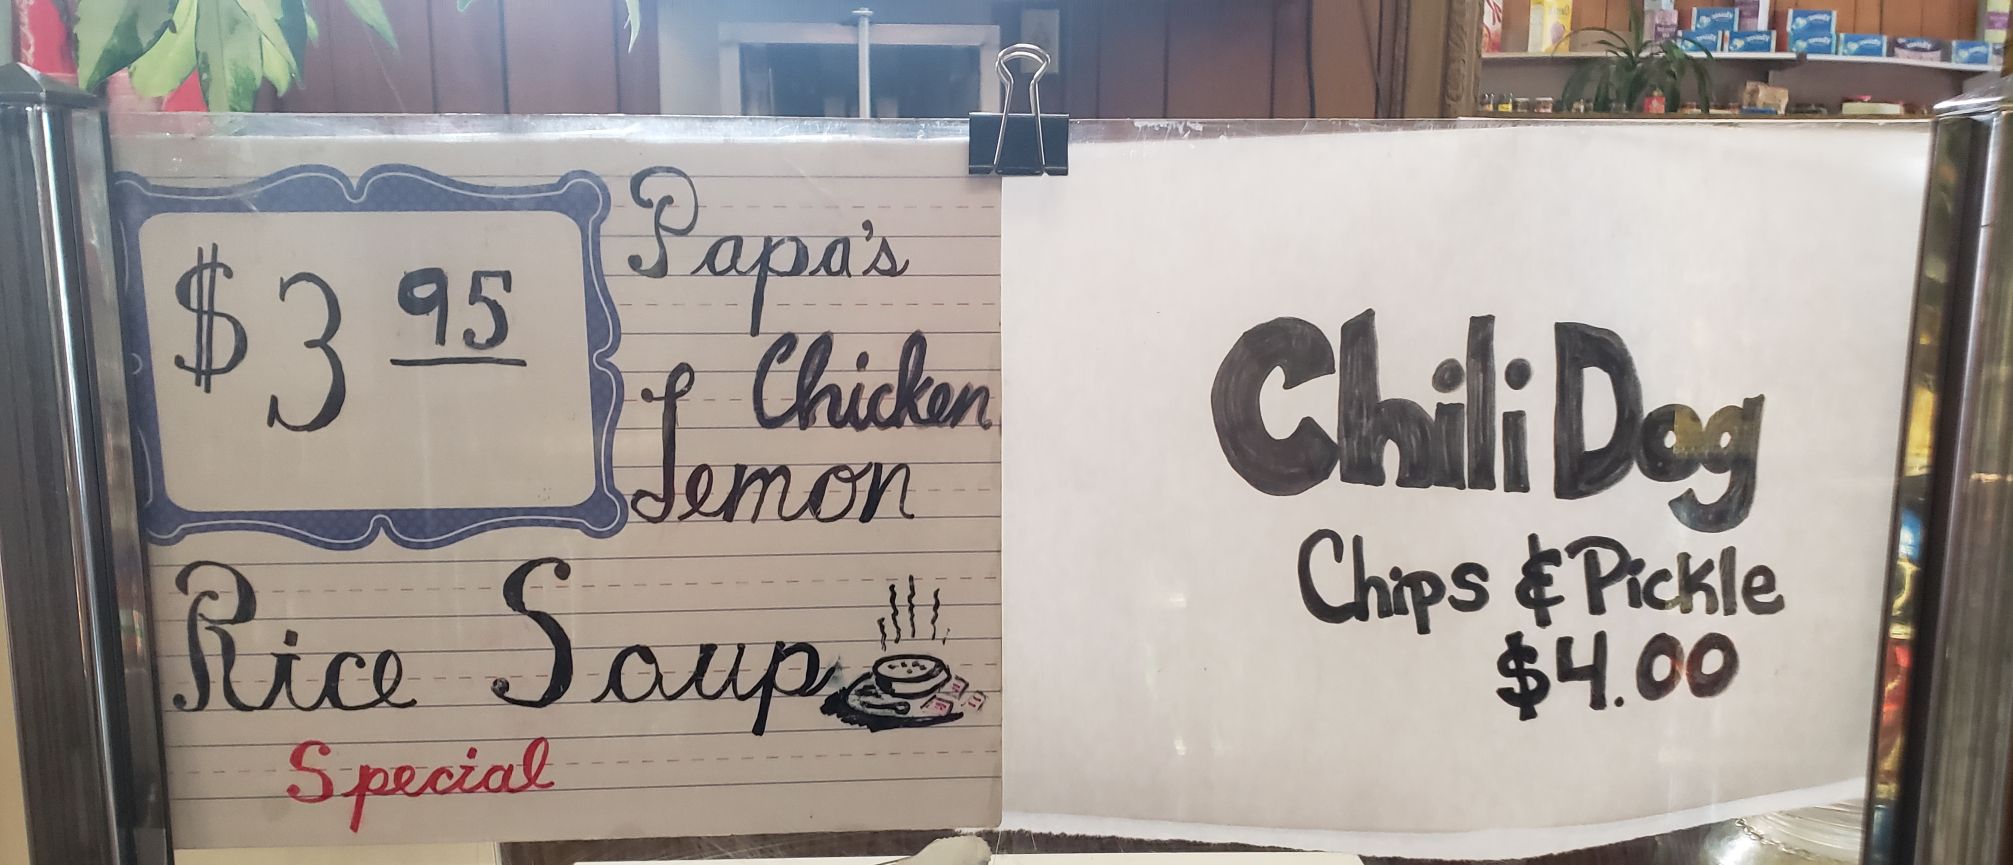 $3 95
Papa's
Chicken
Lemon
Rice Soup
Special
Chili Dog
Chips & Pickle
$4.00